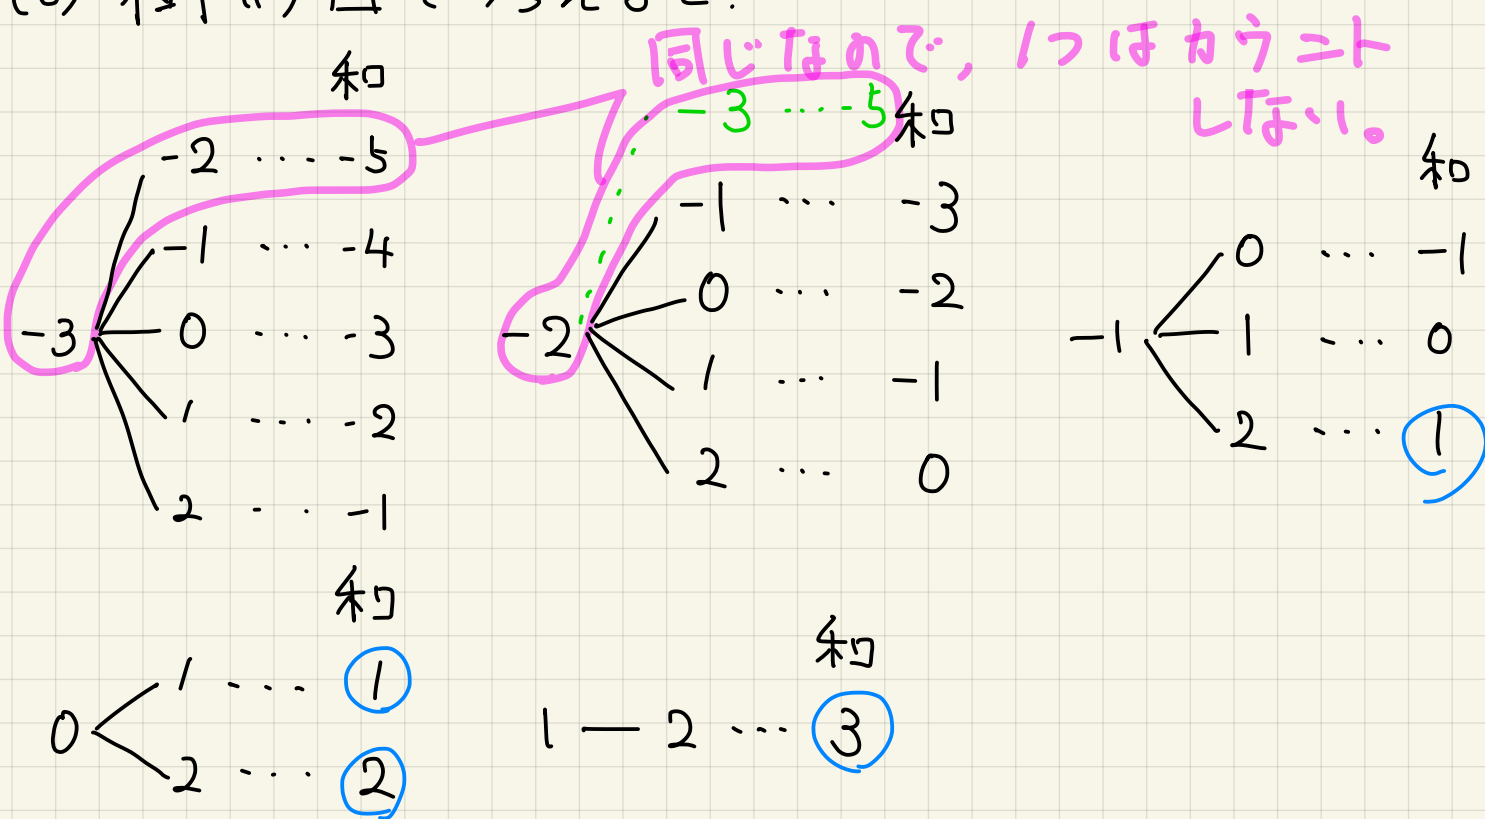 同じなので、1つはカウント
しない。
和
-2 ・・・ -5
-1 ・・・ -4
-3 0 ・・・ -3
1 ・・・ -2
2 ・・ -1
和
-3 ・・・ 5
-1 ・・・ -3
0 ・・・ -2
-2
1 ・・・ -1
2 ・・・ 0
和
0 ・・・ -1
-1 1 ・・・ 0
2 ・・・ 1
和
1 ・・・ 1
0
2 ・・・ 2
和
1 — 2 ・・・ 3